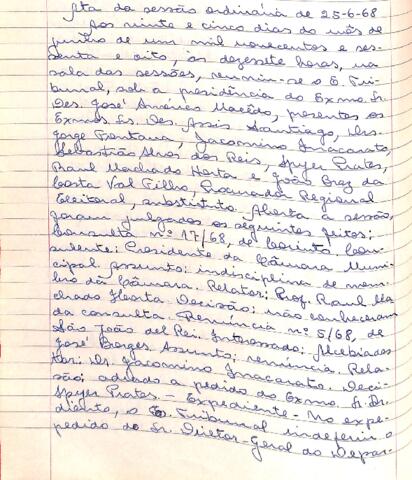 Ata da sessão ordinária de 25-6-68
Aos vinte e cinco dias do mês de
junho de um mil novecentos e ses-
senta e oito, às dezessete horas, na
sala das sessões, reuniu-se o E. Tri-
bunal, sob a presidência do Exmo. Sr.
Des. José Américo Macêdo, presentes os
Exmos. Srs. Des. Assis Santiago, Drs.
Jorge Fontana, Jacomino Inacarato,
Sebastião Alves dos Reis, Spyer Prates,
Raul Machado Horta e João Braz da
Costa Val Filho, Procurador Regional
Eleitoral, substituto. Aberta a sessão,
foram julgados os seguintes feitos:
Consulta nº 17/68, de Corinto. Con-
sulente: Presidente da Câmara Muni-
cipal. Assunto: indisciplina de mem-
bro da Câmara. Relator: Prof. Raul Ma
chado Horta. Decisão: não conheceram
da consulta. Renúncia nº 5/68, de
São João del Rei. Interessado: Alcebíades
José Borges. Assunto: renúncia. Rela-
tor: Dr. Jacomino Inacarato. Deci-
são: adiado a pedido do Exmo. Sr. Dr.
Spyer Prates. - Expediente - No expe-
diente, o E. Tribunal indeferiu o
pedido do Sr. Diretor-Geral do Depar-